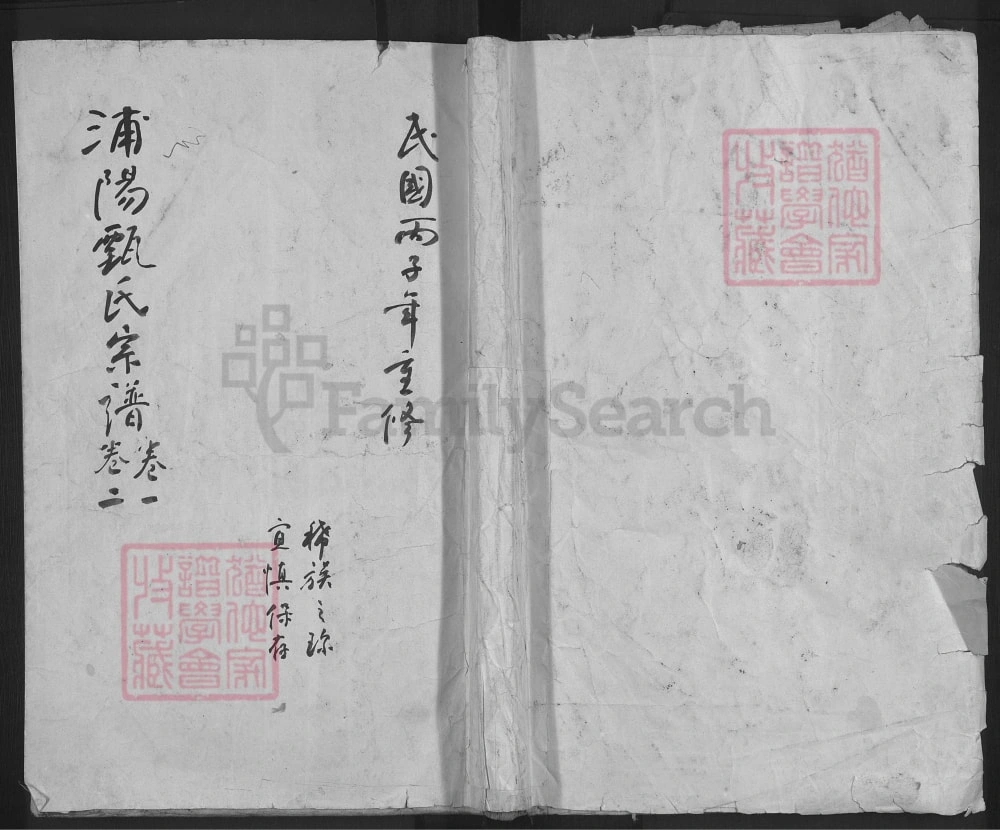 民國丙子年重修
浦陽甄氏宗譜
卷一
卷二
稀族之珍
宜慎保存
猶他家
譜學會
收藏
猶他家
譜學會
收藏
FamilySearch